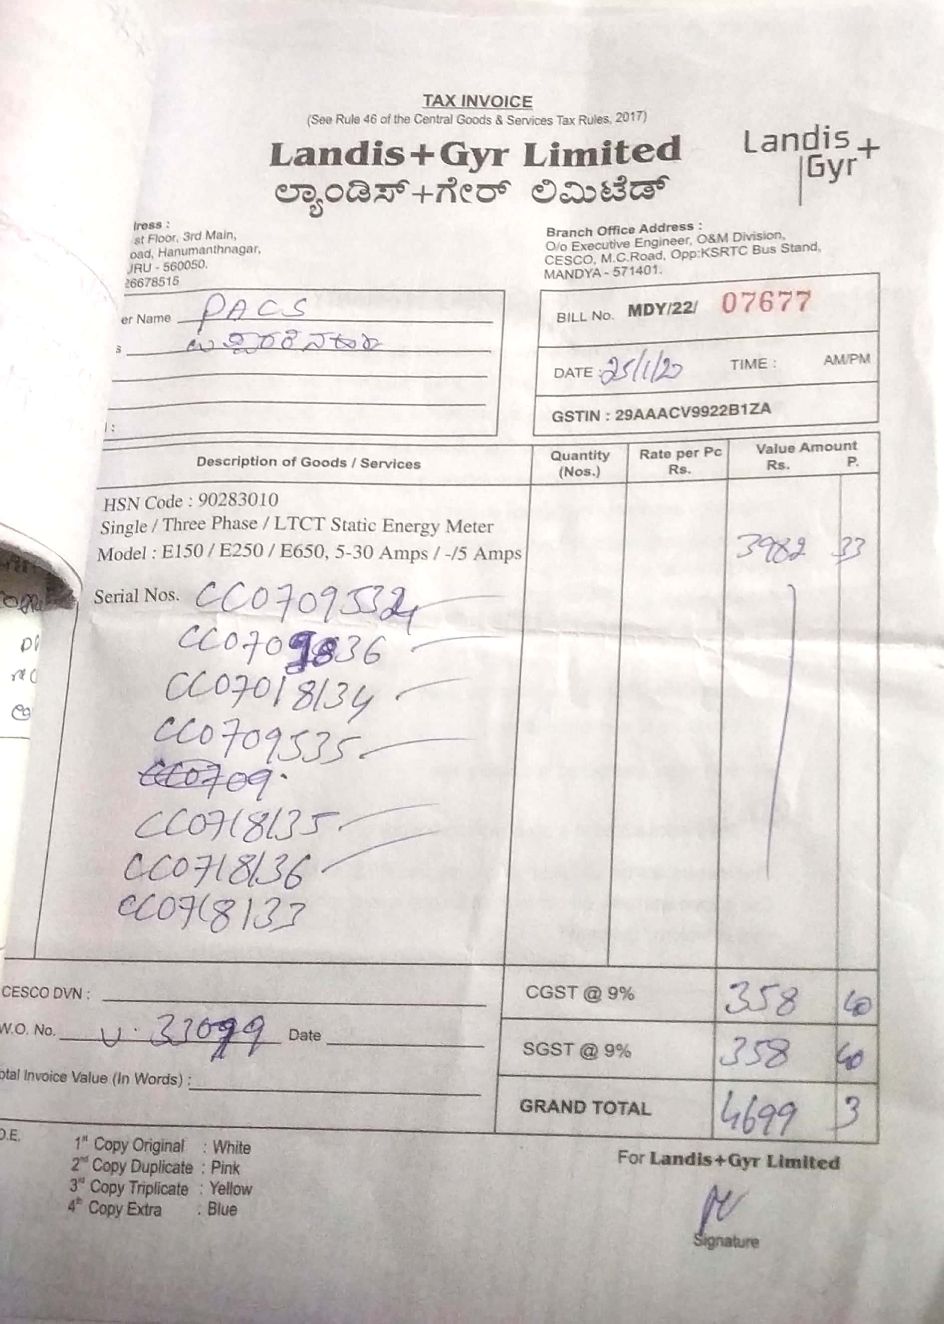 TAX INVOICE
(See Rule 46 of the Central Goods & Services Tax Rules, 2017)
Landis+Gyr Limited
ಲ್ಯಾಂಡಿಸ್+ಗೇರ್ ಲಿಮಿಟೆಡ್
Landis+
Gyr
dress :
st Floor, 3rd Main,
oad, Hanumanthnagar,
URU - 560050.
26678515
Branch Office Address :
O/o Executive Engineer, O&M Division,
CESCO, M.C.Road, Opp:KSRTC Bus Stand,
MANDYA - 571401.
er Name PACS
s
BILL No. MDY/22/ 07677
DATE : 25/1/20 TIME : AM/PM
GSTIN : 29AAACV9922B1ZA
Description of Goods / Services
Quantity (Nos.)
Rate per Pc Rs.
Value Amount Rs. P.
HSN Code : 90283010
Single / Three Phase / LTCT Static Energy Meter
Model : E150 / E250 / E650, 5-30 Amps / -/5 Amps 3982 33
Serial Nos. CC0709532
CC0709836
CC0718134
CC0709535
CC0709
CC0718135
CC0718136
CC0718133
CESCO DVN :
CGST @ 9% 358 40
W.O. No. Date
SGST @ 9% 358 40
otal Invoice Value (In Words) :
GRAND TOTAL 4699 3
O.E.
1st Copy Original : White
2nd Copy Duplicate : Pink
3rd Copy Triplicate : Yellow
4th Copy Extra : Blue
For Landis+Gyr Limited
Signature